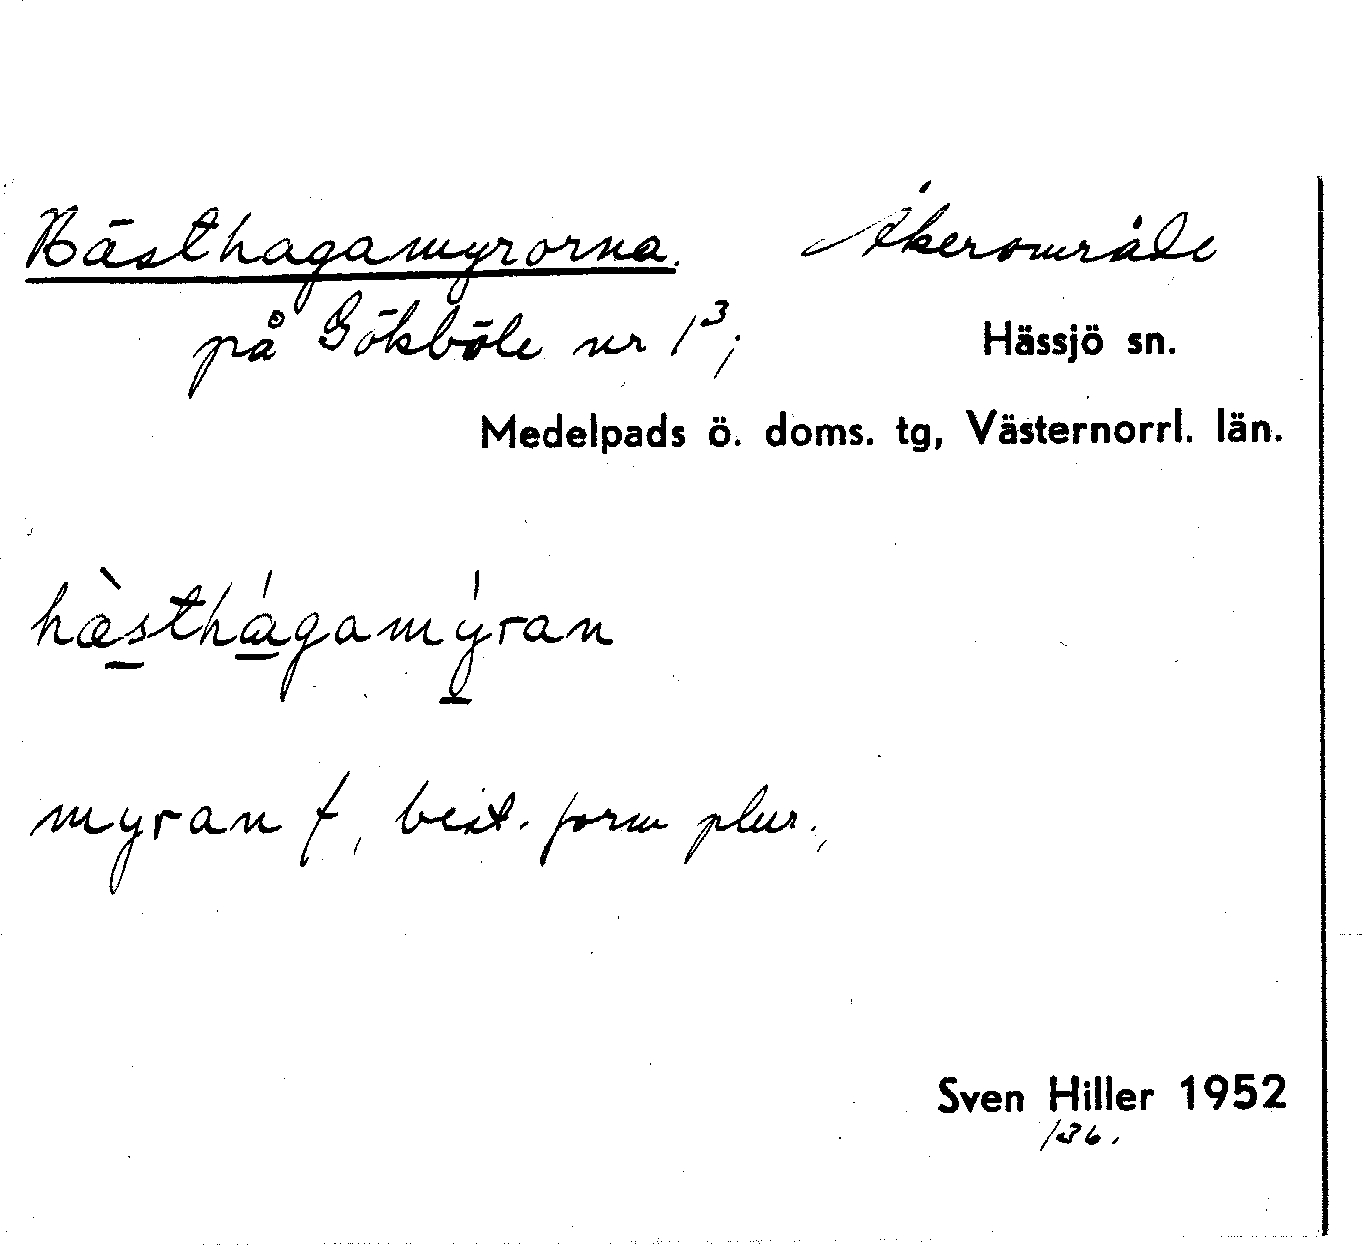 Hästhagamyrorna. Åkerområde
på Gökböle nr 1³; Hässjö sn.
Medelpads ö. doms. tg, Västernorrl. län.
hæ̀sthágamýran
myran f, best. form plur.,
Sven Hiller 1952
136.